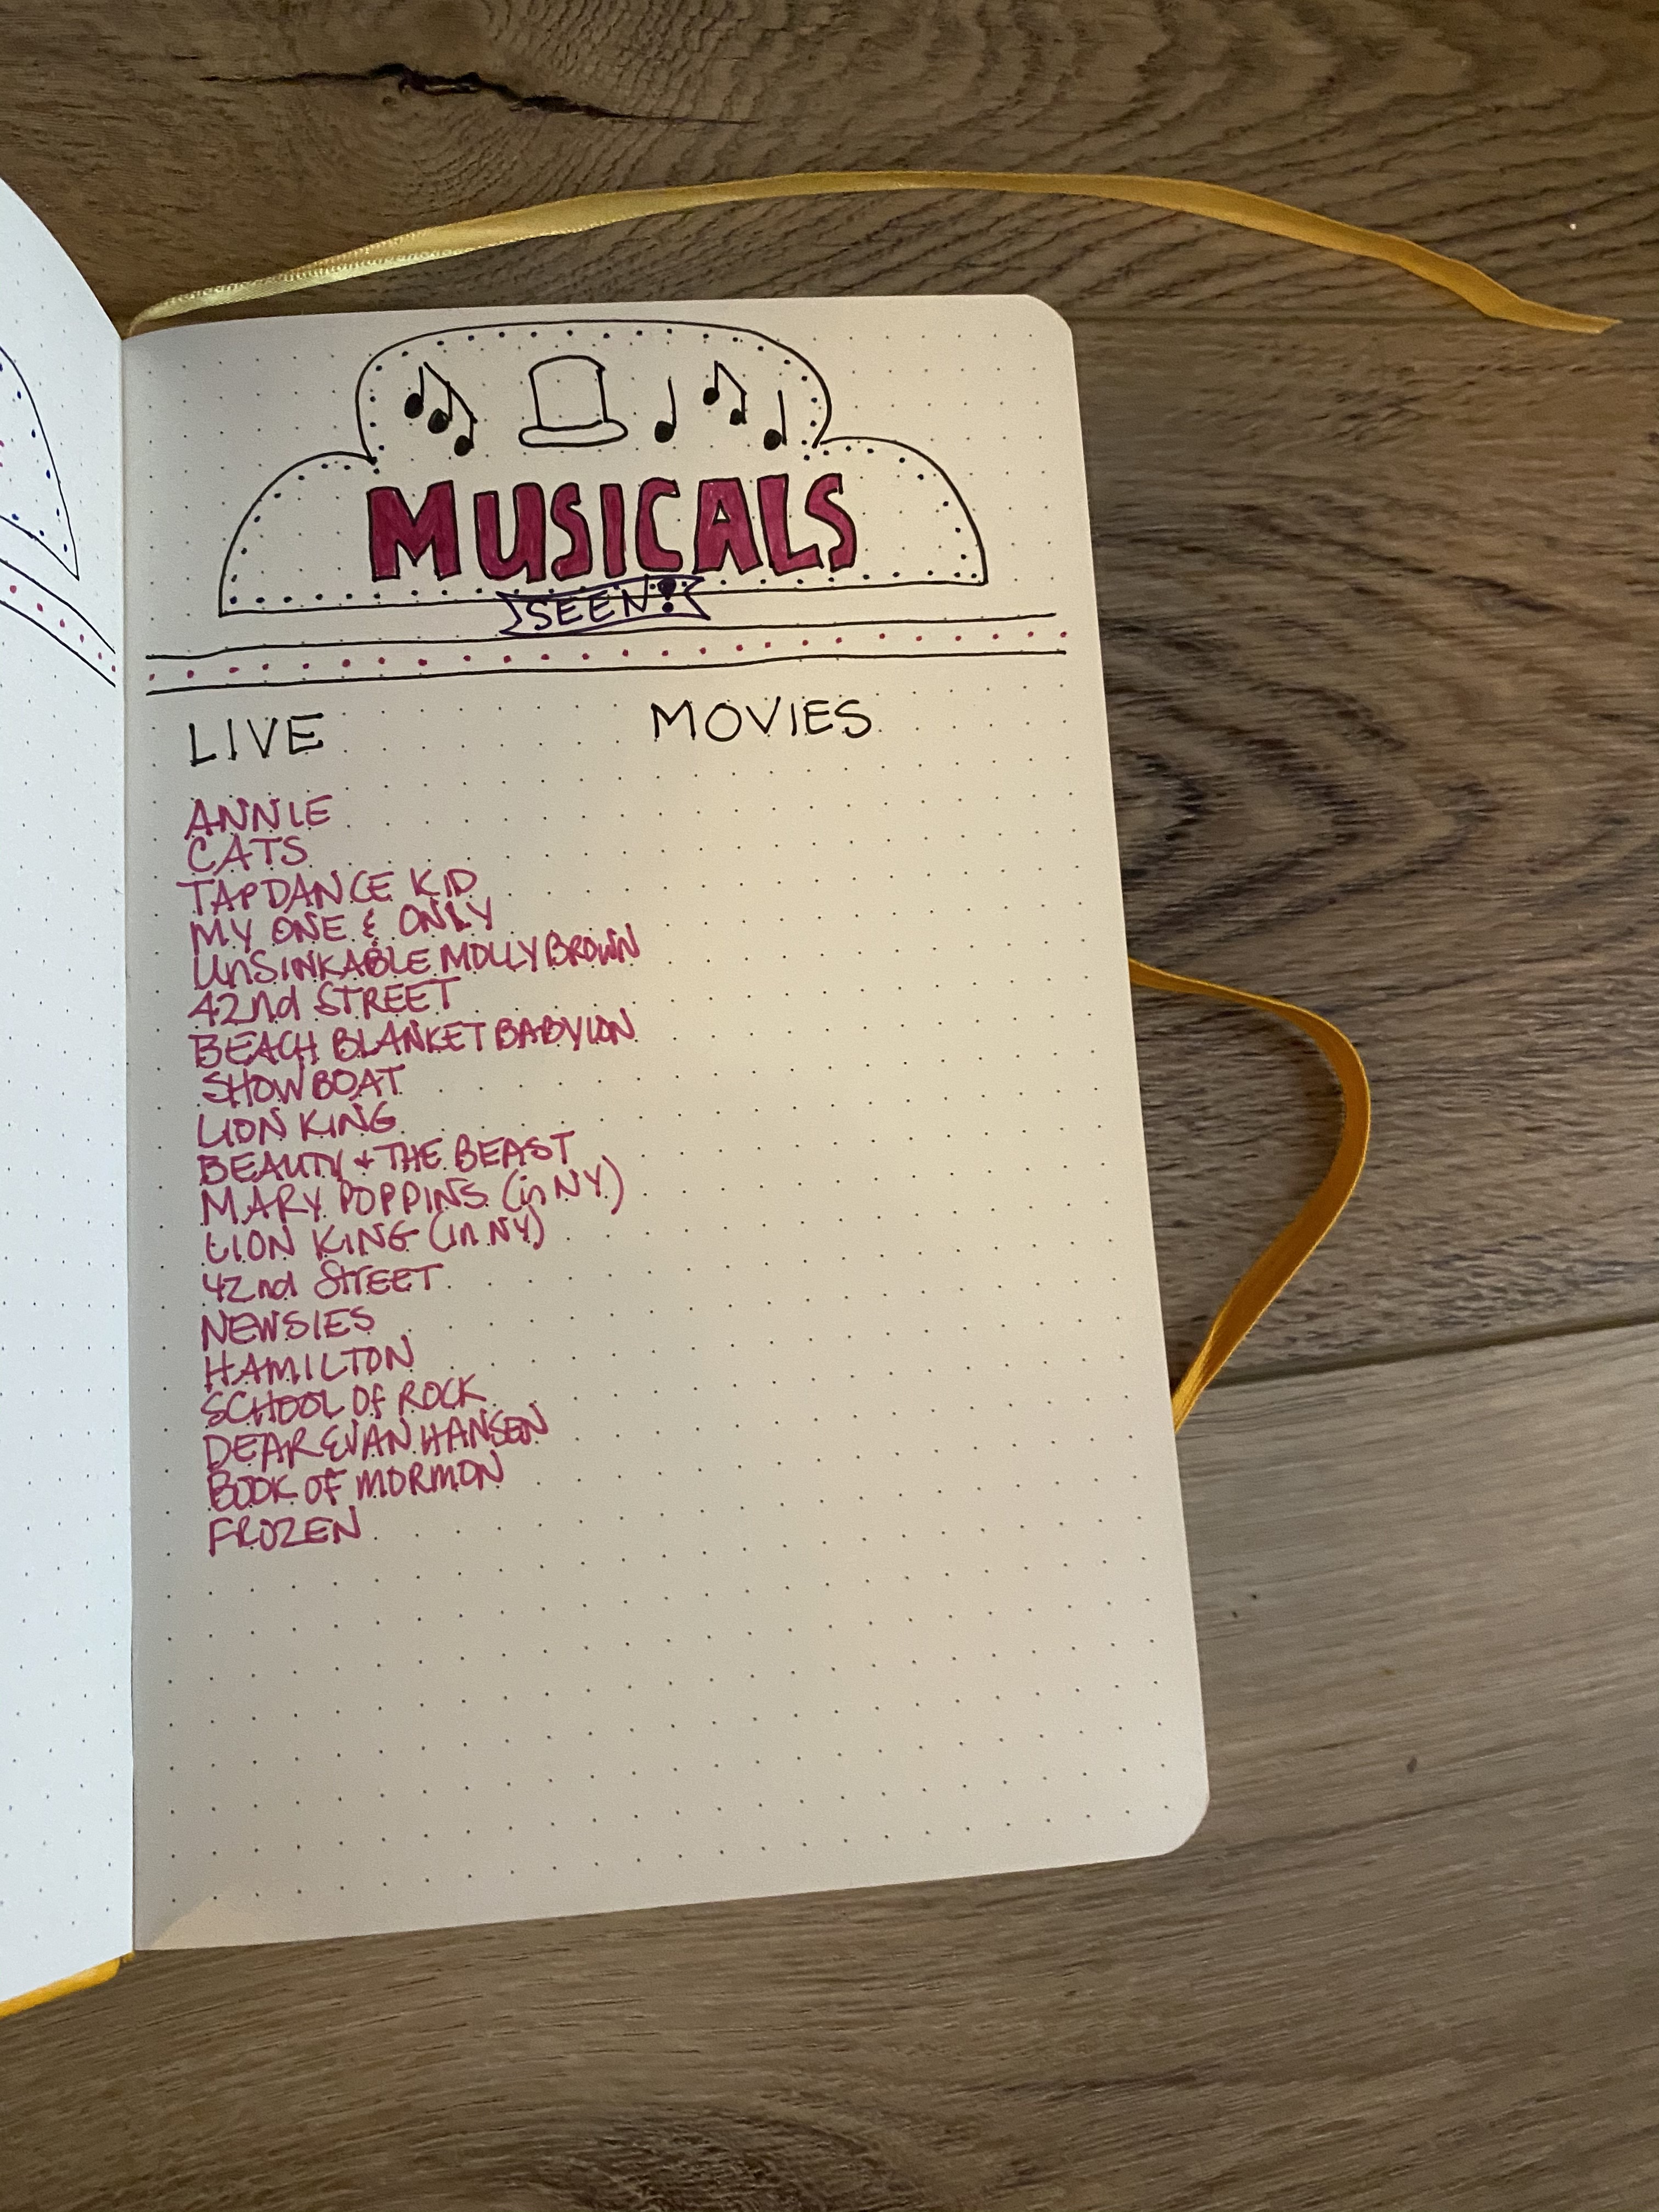 MUSICALS
SEEN!
LIVE
MOVIES
ANNIE
CATS
TAPDANCE KID
MY ONE & ONLY
UnSINKABLE MOLLY BROWN
42nd STREET
BEACH BLANKET BABYLON
SHOWBOAT
LION KING
BEAUTY + THE BEAST
MARY POPPINS (in NY)
LION KING (in NY)
42nd STrEET
NEWSIES
HAMILTON
SCHOOL Of ROCK
DEAR EVAN HANSEN
BOOK OF MORMON
FROZEN